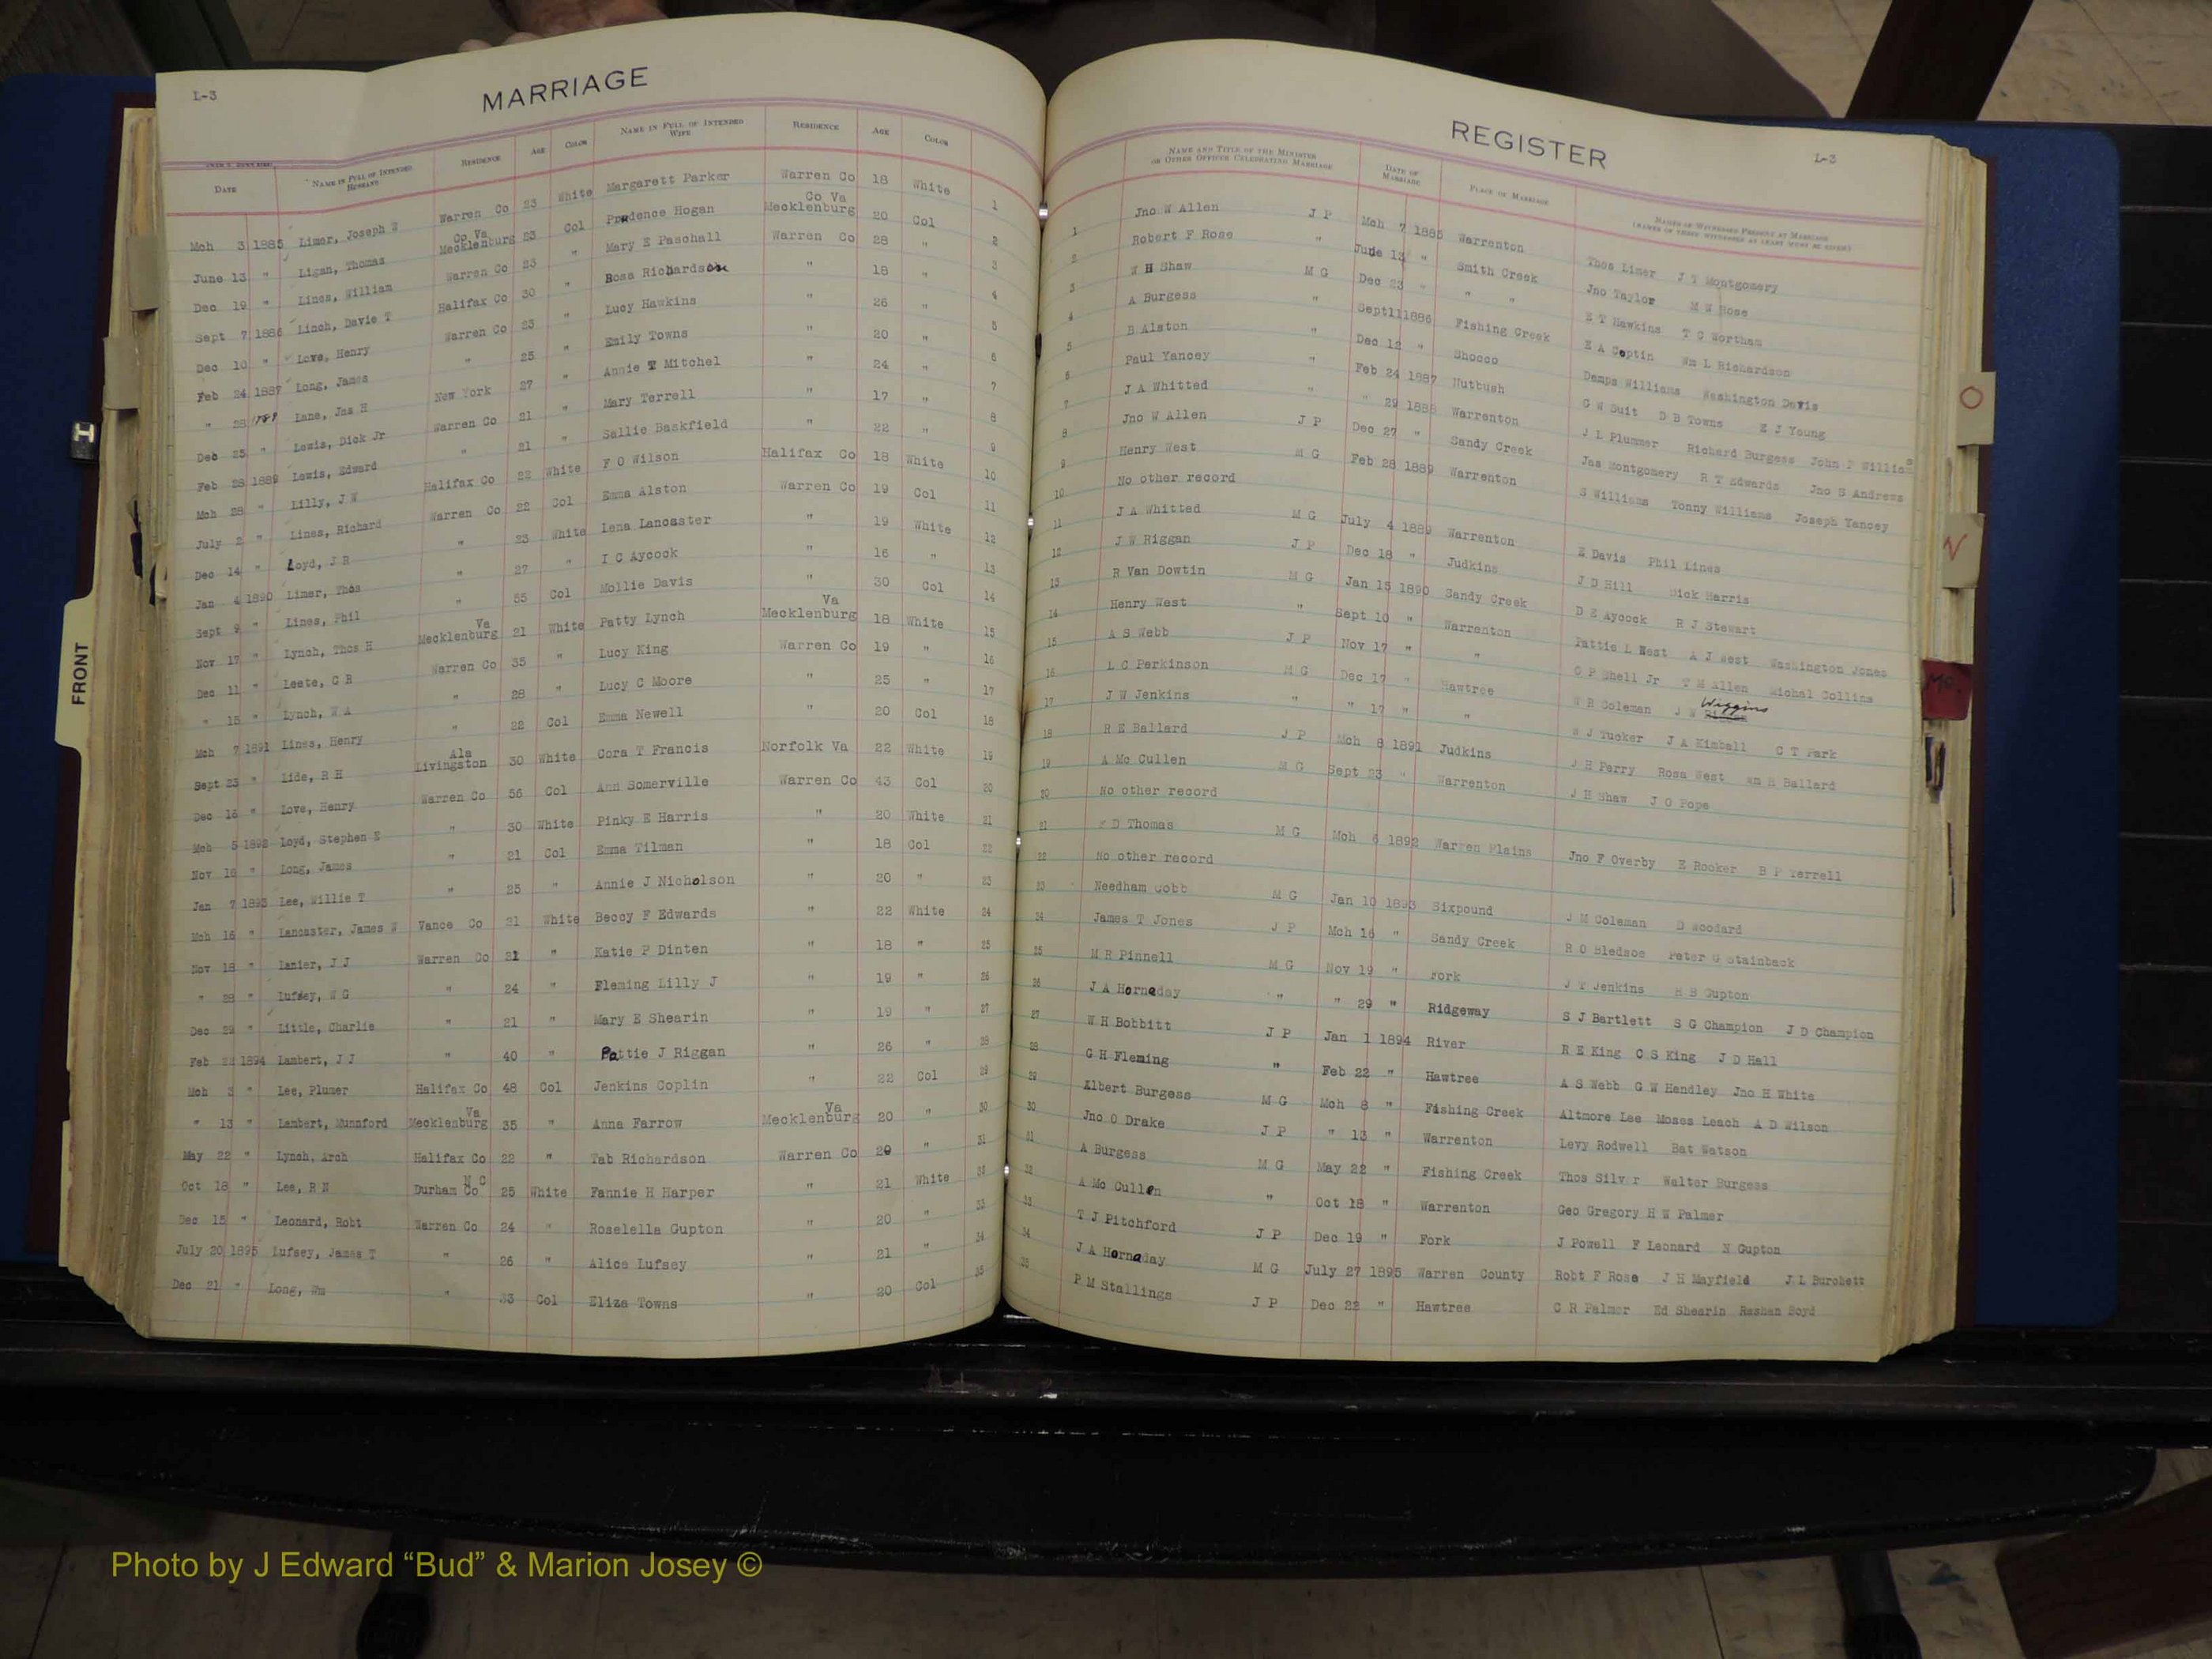 L-3
MARRIAGE
DATE NAME IN FULL OF INTENDED HUSBAND RESIDENCE AGE COLOR NAME IN FULL OF INTENDED WIFE RESIDENCE AGE COLOR
Mch 3 1885 Limer, Joseph W Warren Co 23 White Margarett Parker Warren Co 18 White 1
June 13 " Ligan, Thomas Mecklenburg Co Va 23 Col Prudence Hogan Mecklenburg Co Va 20 Col 2
Dec 19 " Lines, William Warren Co 23 " Mary E Paschall Warren Co 28 " 3
Sept 7 1886 Linch, Davie T Halifax Co 30 " Rosa Richardson " 18 " 4
Dec 10 " Love, Henry Warren Co 23 " Lucy Hawkins " 26 " 5
Feb 24 1887 Long, James " 25 " Emily Towns " 20 " 6
" 28 Lane, Jas H New York 27 " Annie T Mitchel " 24 " 7
Dec 25 " Lewis, Dick Jr Warren Co 21 " Mary Terrell " 17 " 8
Feb 28 1889 Lewis, Edward " 21 Sallie Baskfield " 22 " 9
Mch 28 " Lilly, J W Halifax Co 22 White F O Wilson Halifax Co 18 White 10
July 2 " Lines, Richard Warren Co 22 Col Emma Alston Warren Co 19 Col 11
Dec 14 " Loyd, J R " 23 White Lena Lancaster " 19 White 12
Jan 4 1890 Limer, Thos " 27 " I C Aycock " 16 " 13
Sept 9 " Lines, Phil " 55 Col Mollie Davis " 30 Col 14
Nov 17 " Lynch, Thos H Mecklenburg Va 21 White Patty Lynch Mecklenburg Va 18 White 15
Dec 11 " Leete, C R Warren Co 35 " Lucy King Warren Co 19 " 16
" 15 " Lynch, W A " 28 " Lucy C Moore " 25 " 17
Mch 7 1891 Lines, Henry " 22 Col Emma Newell " 20 Col 18
Sept 23 " Lide, R H Livingston Ala 30 White Cora T Francis Norfolk Va 22 White 19
Dec 16 " Love, Henry Warren Co 56 Col Ann Somerville Warren Co 43 Col 20
Mch 5 1892 Loyd, Stephen E " 30 White Pinky E Harris " 20 White 21
Nov 16 " Long, James " 21 Col Emma Tilman " 18 Col 22
Jan 7 1893 Lee, Willie T " 25 " Annie J Nicholson " 20 " 23
Mch 16 " Lancaster, James W Vance Co 21 White Beccy F Edwards " 22 White 24
Nov 18 " Lanier, J J Warren Co 21 " Katie P Dinten " 18 " 25
" 28 " Lufsey, W G " 24 " Fleming Lilly J " 19 " 26
Dec 29 " Little, Charlie " 21 " Mary E Shearin " 19 " 27
Feb 22 1894 Lambert, J J " 40 " Pattie J Riggan " 26 " 28
Mch 3 " Lee, Plumer Halifax Co 48 Col Jenkins Coplin " 22 Col 29
" 13 " Lambert, Munnford Mecklenburg Va 35 " Anna Farrow Mecklenburg Va 20 " 30
May 22 " Lynch, Arch Halifax Co 22 " Tab Richardson Warren Co 20 " 31
Oct 18 " Lee, R N Durham Co N C 25 White Fannie H Harper " 21 White 32
Dec 15 " Leonard, Robt Warren Co 24 " Roselella Gupton " 20 " 33
July 20 1895 Lufsey, James T " 26 " Alice Lufsey " 21 " 34
Dec 21 " Long, Wm " 33 Col Eliza Towns " 20 Col 35
REGISTER
L-3
NAME AND TITLE OF THE MINISTER OR OTHER OFFICER CELEBRATING MARRIAGE DATE OF MARRIAGE PLACE OF MARRIAGE NAMES OF WITNESSES PRESENT AT MARRIAGE (NAMES OF THREE WITNESSES AT LEAST MUST BE GIVEN)
1 Jno W Allen J P Mch 7 1885 Warrenton Thos Limer J T Montgomery
2 Robert F Rose " June 13 " Smith Creek Jno Taylor M W Rose
3 W H Shaw M G Dec 23 " " " E T Hawkins T C Wortham
4 A Burgess " Sept 11 1886 Fishing Creek E A Coptin Wm L Richardson
5 B Alston " Dec 12 " Shocco Demps Williams Washington Davis
6 Paul Yancey " Feb 24 1887 Nutbush G W Suit D B Towns E J Young
7 J A Whitted " " 29 1888 Warrenton J L Plummer Richard Burgess John P Williams
8 Jno W Allen J P Dec 27 " Sandy Creek Jas Montgomery R T Edwards Jno S Andrews
9 Henry West M G Feb 28 1889 Warrenton S Williams Tonny Williams Joseph Yancey
10 No other record
11 J A Whitted M G July 4 1889 Warrenton E Davis Phil Lines
12 J W Riggan J P Dec 18 " Judkins J D Hill Dick Harris
13 R Van Dowtin M G Jan 15 1890 Sandy Creek D E Aycock R J Stewart
14 Henry West " Sept 10 " Warrenton Pattie L West A J West Washington Jones
15 A S Webb J P Nov 17 " " O P Shell Jr T M Allen Michal Collins
16 L C Perkinson M G Dec 17 " Hawtree W R Coleman J W Wiggins
17 J W Jenkins " " 17 " " W J Tucker J A Kimball C T Park
18 R E Ballard J P Mch 8 1891 Judkins J H Perry Rosa West Wm R Ballard
19 A Mc Cullen M G Sept 23 " Warrenton J H Shaw J O Pope
20 No other record
21 D Thomas M G Mch 6 1892 Warren Plains Jno F Overby E Rooker B P Terrell
22 No other record
23 Needham Cobb M G Jan 10 1893 Sixpound J M Coleman D Woodard
24 James T Jones J P Mch 16 " Sandy Creek R O Bledsoe Peter G Stainback
25 M R Pinnell M G Nov 19 " Fork J T Jenkins H B Gupton
26 J A Hornaday " " 29 " Ridgeway S J Bartlett S G Champion J D Champion
27 W H Bobbitt J P Jan 1 1894 River R E King C S King J D Hall
28 G H Fleming " Feb 22 " Hawtree A S Webb G W Handley Jno H White
29 Albert Burgess M G Mch 8 " Fishing Creek Altmore Lee Moses Leach A D Wilson
30 Jno O Drake J P " 13 " Warrenton Levy Rodwell Bat Watson
31 A Burgess M G May 22 " Fishing Creek Thos Silv r Walter Burgess
32 A Mc Cullen " Oct 18 " Warrenton Geo Gregory H W Palmer
33 T J Pitchford J P Dec 19 " Fork J Powell F Leonard N Gupton
34 J A Hornaday M G July 27 1895 Warren County Robt F Rose J H Mayfield J L Burchett
35 P M Stallings J P Dec 22 " Hawtree C R Palmer Ed Shearin Rashan Boyd
FRONT
O
N
Mc
Photo by J Edward “Bud” & Marion Josey ©